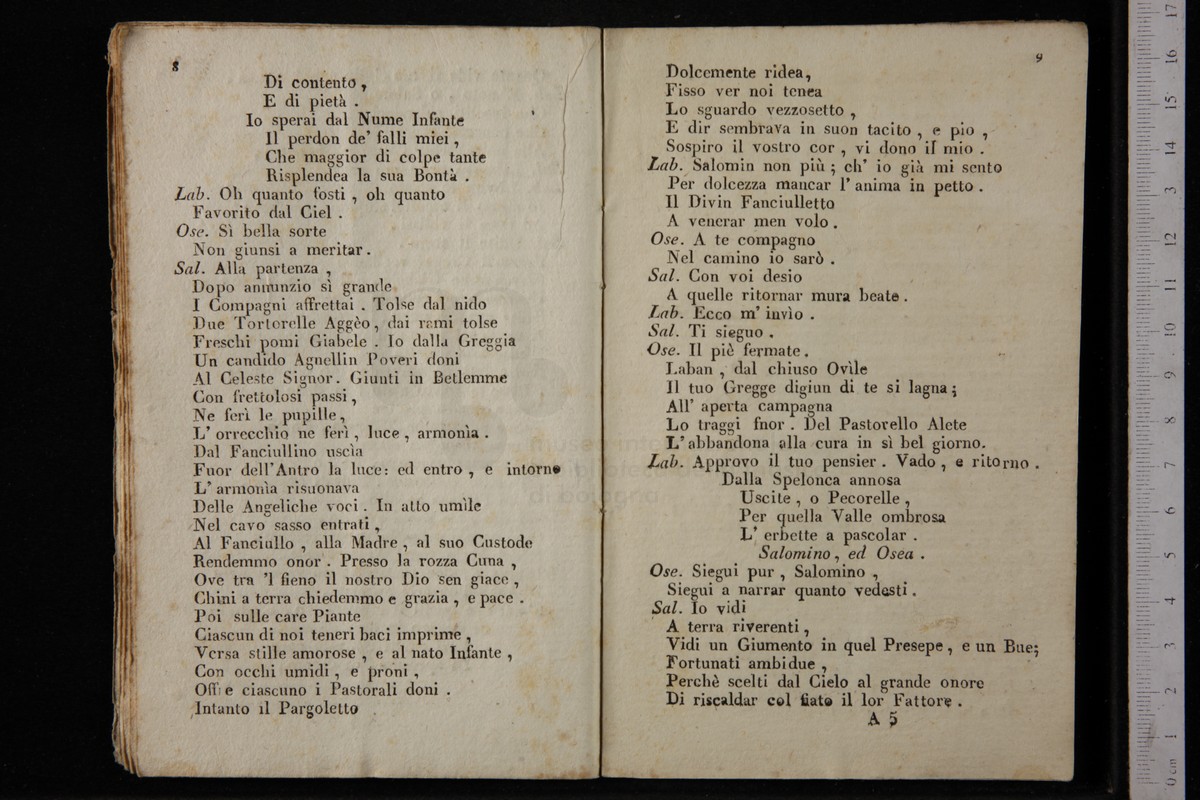 8
Di contento ,
E di pietà .
Io sperai dal Nume Infante
Il perdon de' falli miei ,
Che maggior di colpe tante
Risplendea la sua Bontà .
Lab. Oh quanto fosti , oh quanto
Favorito dal Ciel .
Ose. Sì bella sorte
Non giunsi a meritar .
Sal. Alla partenza ,
Dopo annunzio sì grande
I Compagni affrettai . Tolse dal nido
Due Tortorelle Aggèo , dai rami tolse
Freschi pomi Giabele . Io dalla Greggia
Un candido Agnellin Poveri doni
Al Celeste Signor. Giunti in Betlemme
Con frettolosi passi ,
Ne ferì le pupille ,
L' orrecchio ne ferì , luce , armonìa .
Dal Fanciullino uscìa
Fuor dell'Antro la luce: ed entro , e intorno
L' armonìa risuonava
Delle Angeliche voci . In atto umìle
Nel cavo sasso entrati ,
Al Fanciullo , alla Madre , al suo Custode
Rendemmo onor . Presso la rozza Cuna ,
Ove tra 'l fieno il nostro Dio sen giace ,
Chini a terra chiedemmo e grazia , e pace .
Poi sulle care Piante
Ciascun di noi teneri baci imprime ,
Versa stille amorose , e al nato Infante ,
Con occhi umidi , e proni ,
Offre ciascuno i Pastorali doni .
Intanto il Pargoletto
9
Dolcemente ridea,
Fisso ver noi tenea
Lo sguardo vezzosetto ,
E dir sembrava in suon tacito , e pio ,
Sospiro il vostro cor , vi dono il mio .
Lab. Salomin non più ; ch' io già mi sento
Per dolcezza mancar l' anima in petto .
Il Divin Fanciulletto
A venerar men volo .
Ose. A te compagno
Nel camino io sarò .
Sal. Con voi desio
A quelle ritornar mura beate .
Lab. Ecco m' invìo .
Sal. Ti sieguo .
Ose. Il piè fermate .
Laban , dal chiuso Ovìle
Il tuo Gregge digiun di te si lagna ;
All' aperta campagna
Lo traggi fnor . Del Pastorello Alete
L' abbandona alla cura in sì bel giorno.
Lab. Approvo il tuo pensier . Vado , e ritorno .
Dalla Spelonca annosa
Uscite , o Pecorelle ,
Per quella Valle ombrosa
L' erbette a pascolar .
Salomino , ed Osea .
Ose. Siegui pur , Salomino ,
Siegui a narrar quanto vedesti .
Sal. Io vidi
A terra riverenti ,
Vidi un Giumento in quel Presepe , e un Bue;
Fortunati ambidue ,
Perchè scelti dal Cielo al grande onore
Di riscaldar col fiato il lor Fattore .
A 5
0 cm 1 2 3 4 5 6 7 8 9 10 11 12 13 14 15 16 17